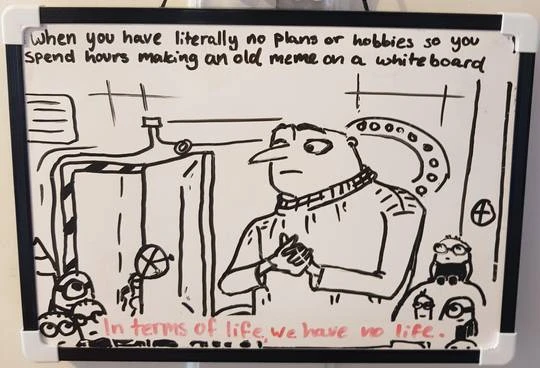 When you have literally no plans or hobbies so you
spend hours making an old meme on a whiteboard
In terms of life, we have no life.